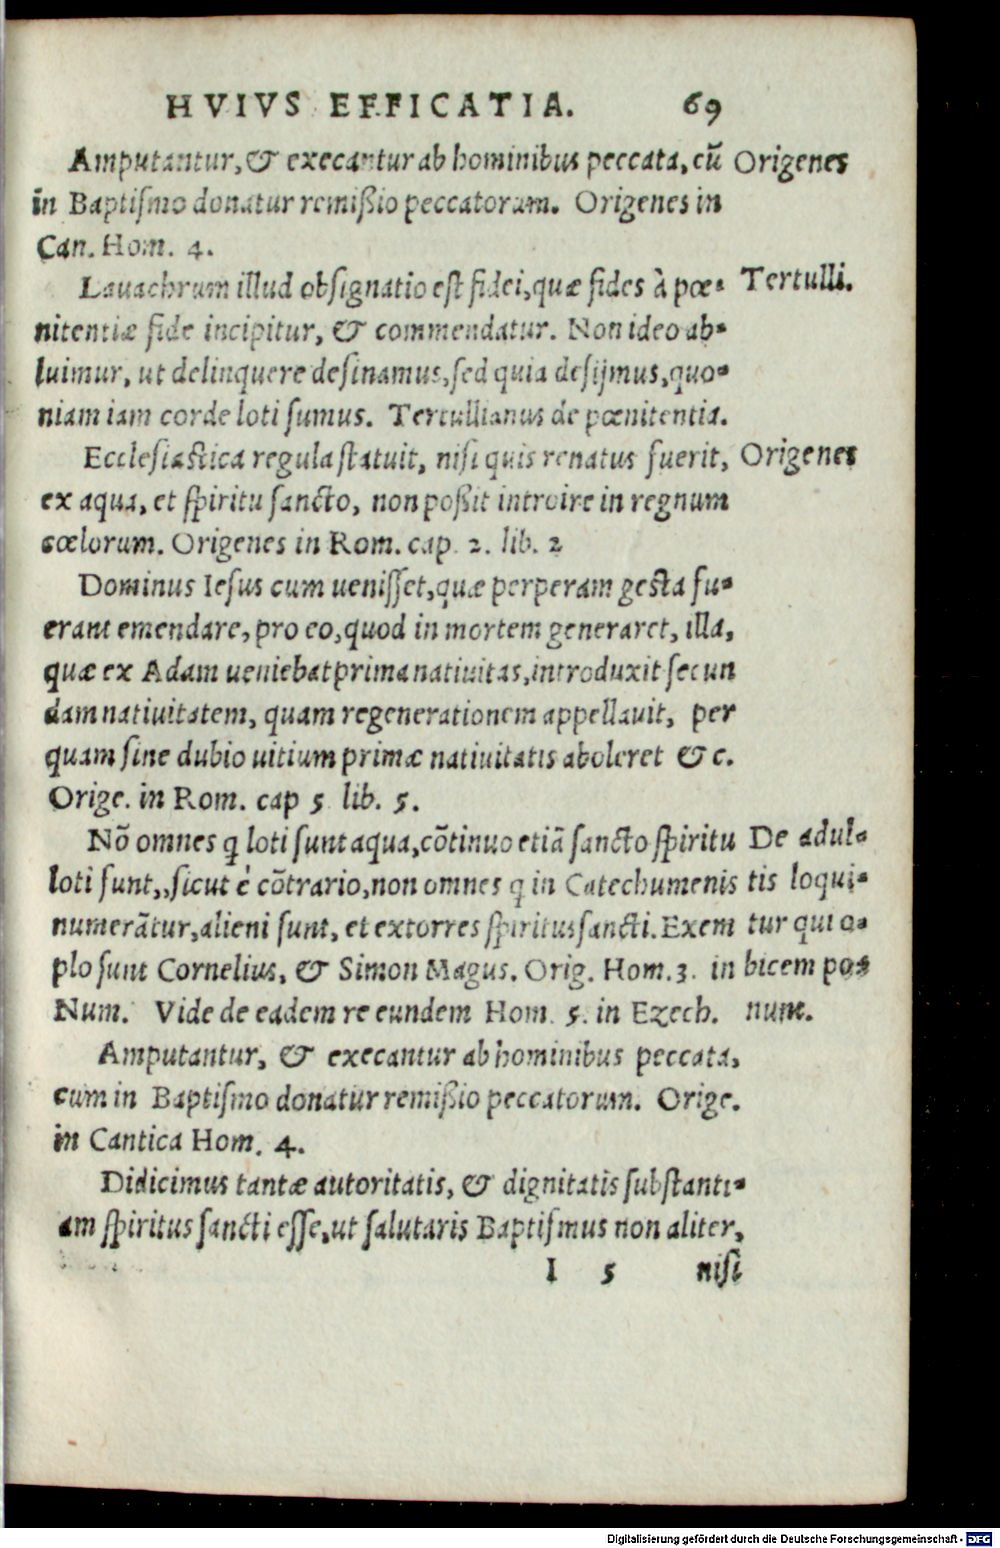 HVIVS EFFICATIA. 69
Amputantur, & execantur ab hominibus peccata, cũ Origenes
in Baptismo donatur remißio peccatorum. Origenes in
Can. Hom. 4.
Lauachrum illud obsignatio est fidei, quæ fides à pœ- Tertulli.
nitentiæ fide incipitur, & commendatur. Non ideo ab-
luimur, ut delinquere desinamus, sed quia desijmus, quo-
niam iam corde loti sumus. Tertullianus de pœnitentia.
Ecclesiastica regula statuit, nisi quis renatus fuerit, Origenes
ex aqua, et spiritu sancto, non poßit introire in regnum
cœlorum. Origenes in Rom. cap. 2. lib. 2
Dominus Iesus cum uenisset, quæ perperam gesta fu-
erant emendare, pro eo, quod in mortem generaret, illa,
quæ ex Adam ueniebat prima natiuitas, introduxit secun
dam natiuitatem, quam regenerationem appellauit, per
quam sine dubio uitium primæ natiuitatis aboleret & c.
Orige. in Rom. cap 5 lib. 5.
Nõ omnes q loti sunt aqua, cõtinuo etiã sancto spiritu De adul-
loti sunt,, sicut è cõtrario, non omnes q in Catechumenis tis loqui-
numerãtur, alieni sunt, et extorres spiritus sancti. Exem tur qui o-
plo sunt Cornelius, & Simon Magus. Orig. Hom. 3. in bicem po-
Num. Vide de eadem re eundem Hom. 5. in Ezech. nunt.
Amputantur, & execantur ab hominibus peccata,
cum in Baptismo donatur remißio peccatorum. Orige.
in Cantica Hom. 4.
Didicimus tantæ autoritatis, & dignitatis substanti-
am spiritus sancti esse, ut salutaris Baptismus non aliter,
I 5 nisi
Digitalisierung gefördert durch die Deutsche Forschungsgemeinschaft - DFG